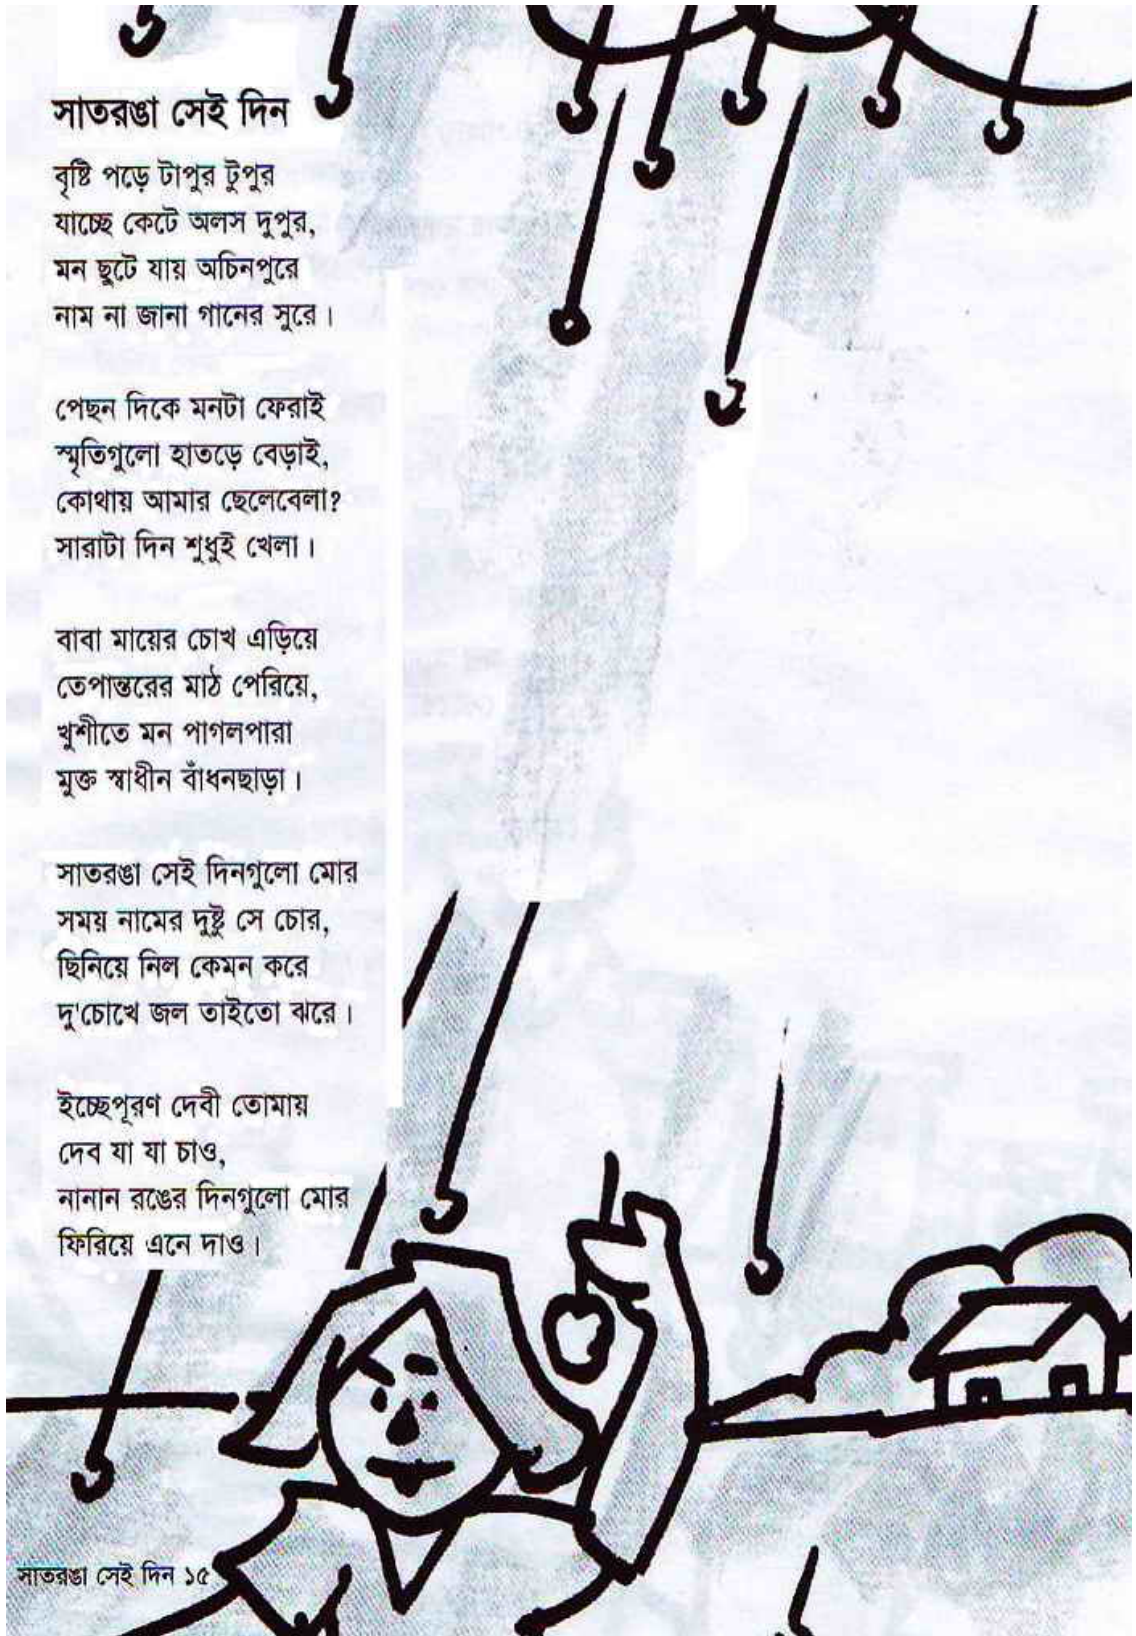 সাতরঙা সেই দিন
বৃষ্টি পড়ে টাপুর টুপুর
যাচ্ছে কেটে অলস দুপুর,
মন ছুটে যায় অচিনপুরে
নাম না জানা গানের সুরে।
পেছন দিকে মনটা ফেরাই
স্মৃতিগুলো হাতড়ে বেড়াই,
কোথায় আমার ছেলেবেলা?
সারাটা দিন শুধুই খেলা।
বাবা মায়ের চোখ এড়িয়ে
তেপান্তরের মাঠ পেরিয়ে,
খুশীতে মন পাগলপারা
মুক্ত স্বাধীন বাঁধনছাড়া।
সাতরঙা সেই দিনগুলো মোর
সময় নামের দুষ্টু সে চোর,
ছিনিয়ে নিল কেমন করে
দু'চোখে জল তাইতো ঝরে।
ইচ্ছেপূরণ দেবী তোমায়
দেব যা যা চাও,
নানান রঙের দিনগুলো মোর
ফিরিয়ে এনে দাও।
সাতরঙা সেই দিন ১৫